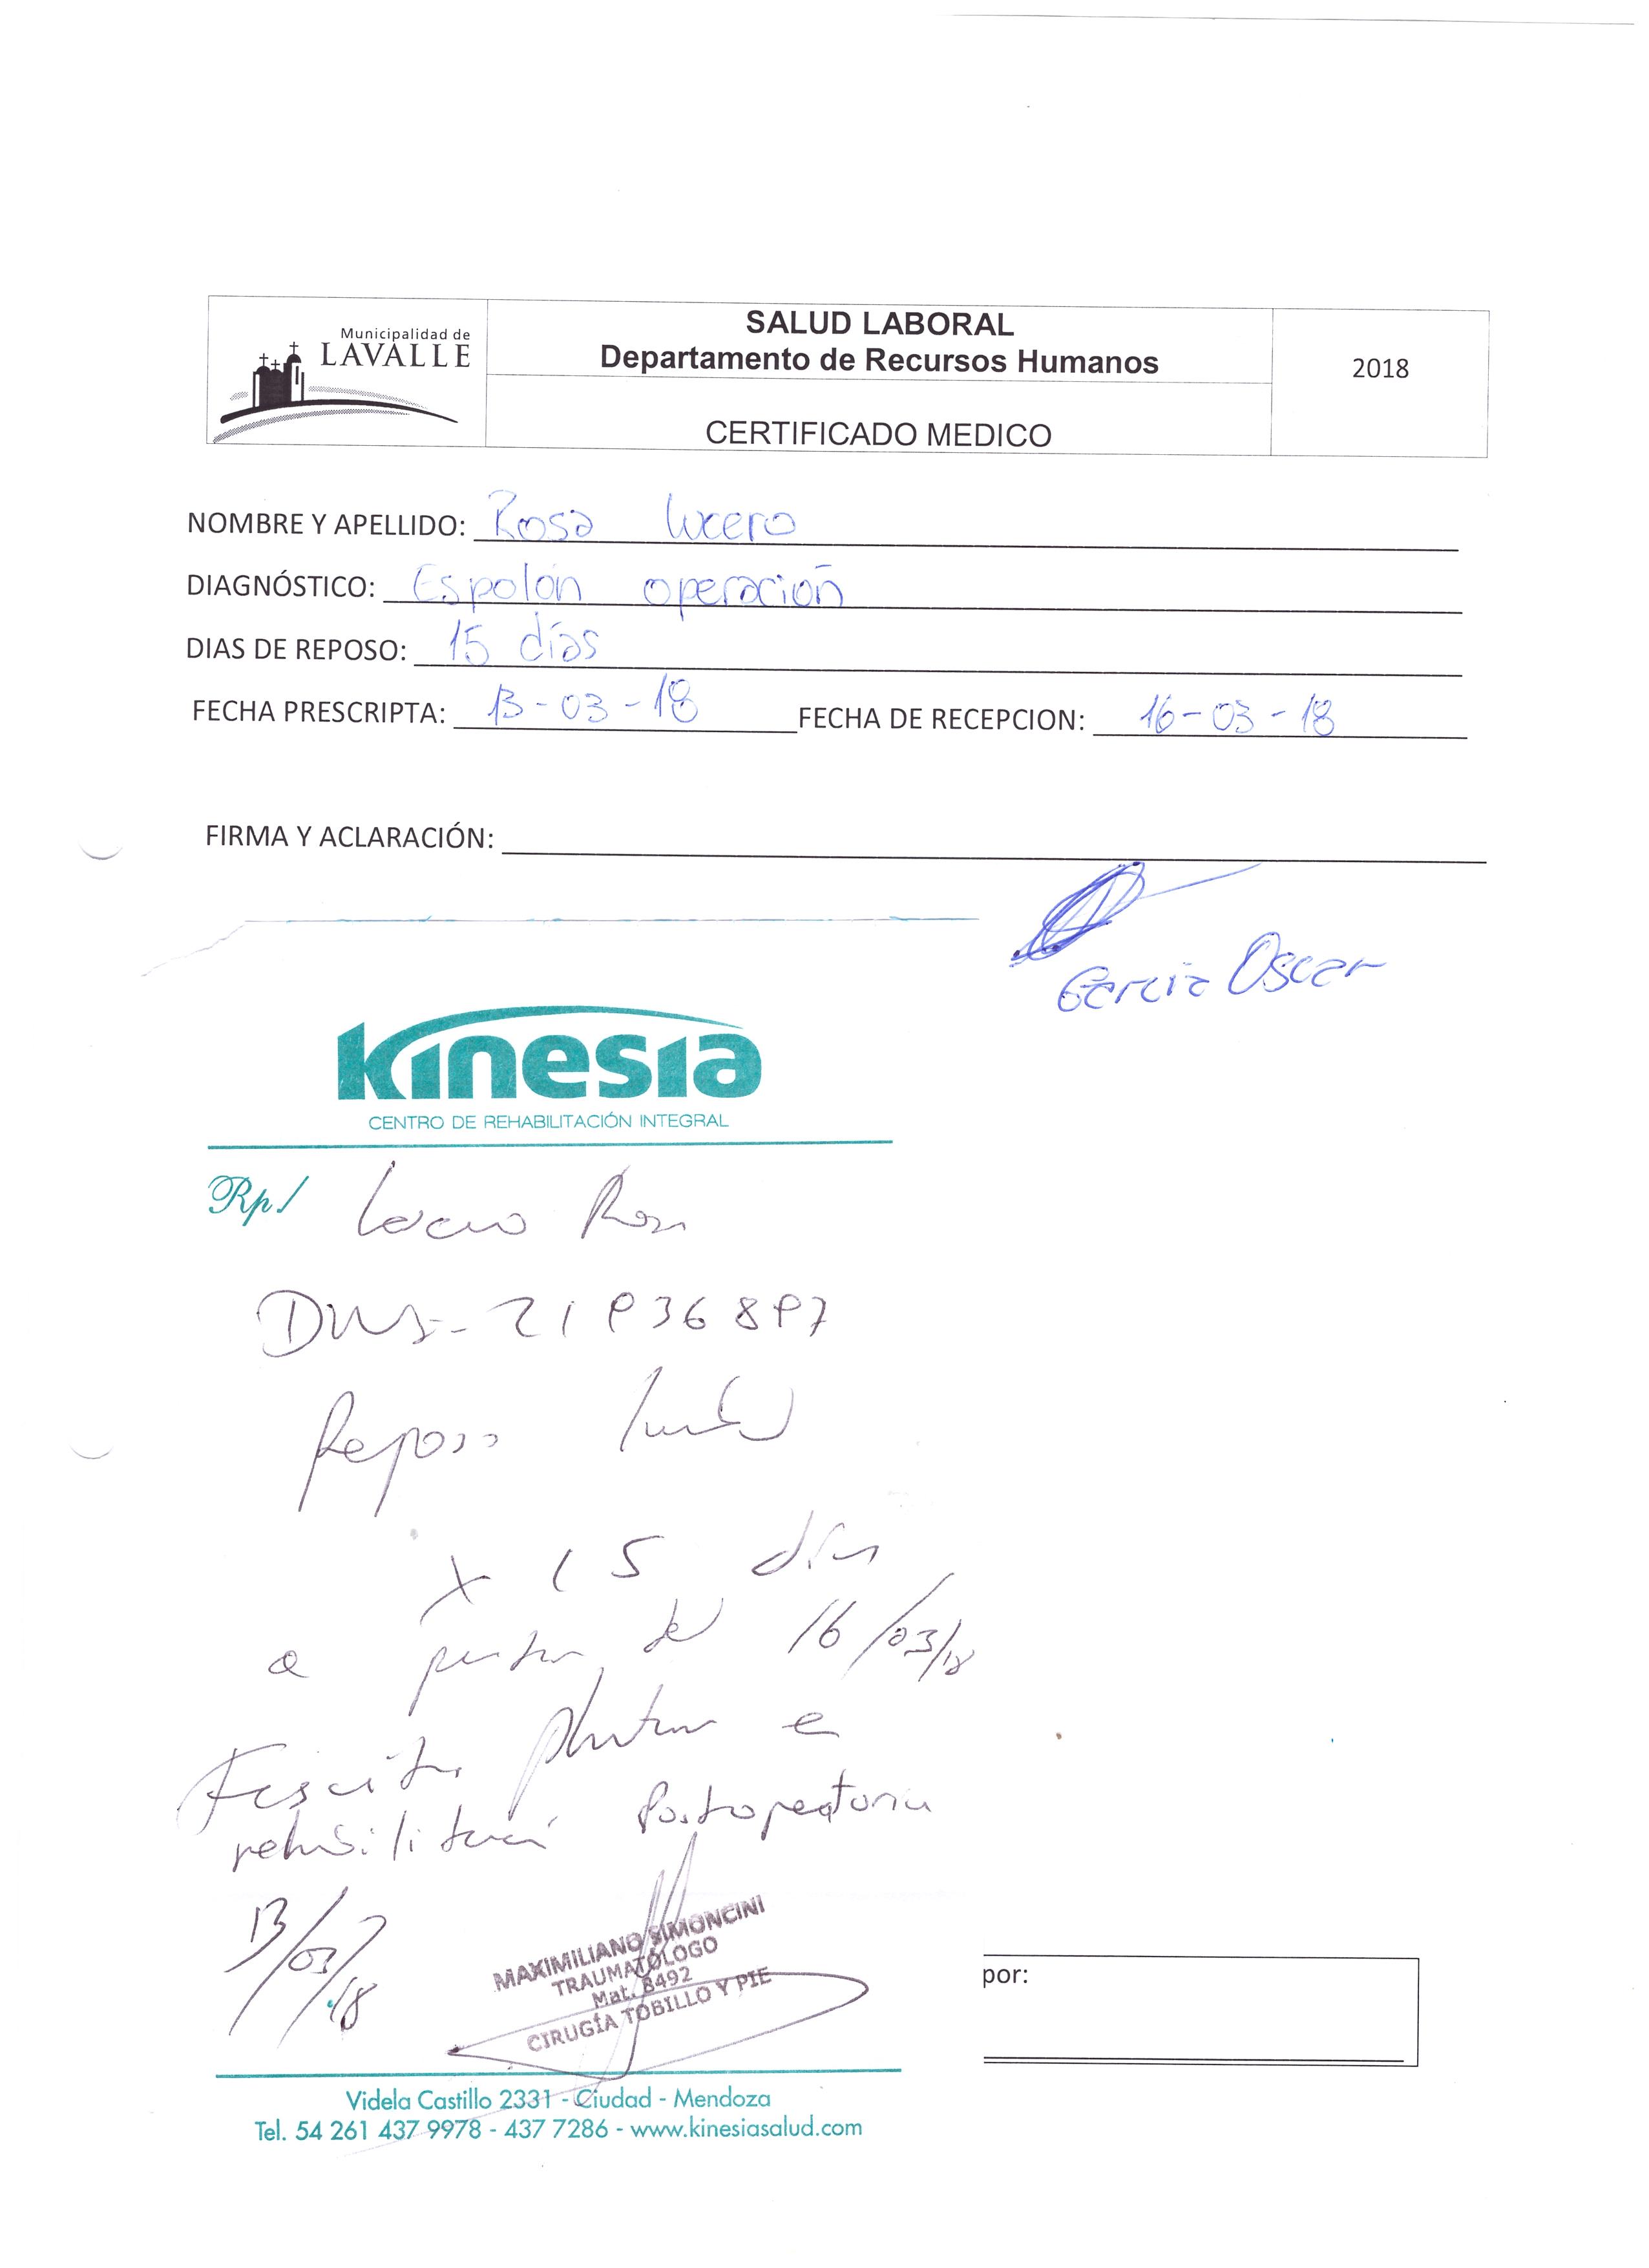 Municipalidad de
LAVALLE
SALUD LABORAL
Departamento de Recursos Humanos
CERTIFICADO MEDICO
2018
NOMBRE Y APELLIDO: Rosa Lucero
DIAGNÓSTICO: Espolón operación
DIAS DE REPOSO: 15 días
FECHA PRESCRIPTA: 13-03-18 FECHA DE RECEPCION: 16-03-18
FIRMA Y ACLARACIÓN:
Garcia Oscar
Kinesia
CENTRO DE REHABILITACIÓN INTEGRAL
Rp/ Lucero Rosa
DNI- 21936897
Reposo
x 15 días
a partir del 16/03/18
Fascitis plantar e
rehabilitación Postoperatoria
13/03/18
MAXIMILIANO SIMONCINI
TRAUMATÓLOGO
Mat. 8492
CIRUGÍA TOBILLO Y PIE
por:
Videla Castillo 2331 - Ciudad - Mendoza
Tel. 54 261 437 9978 - 437 7286 - www.kinesiasalud.com